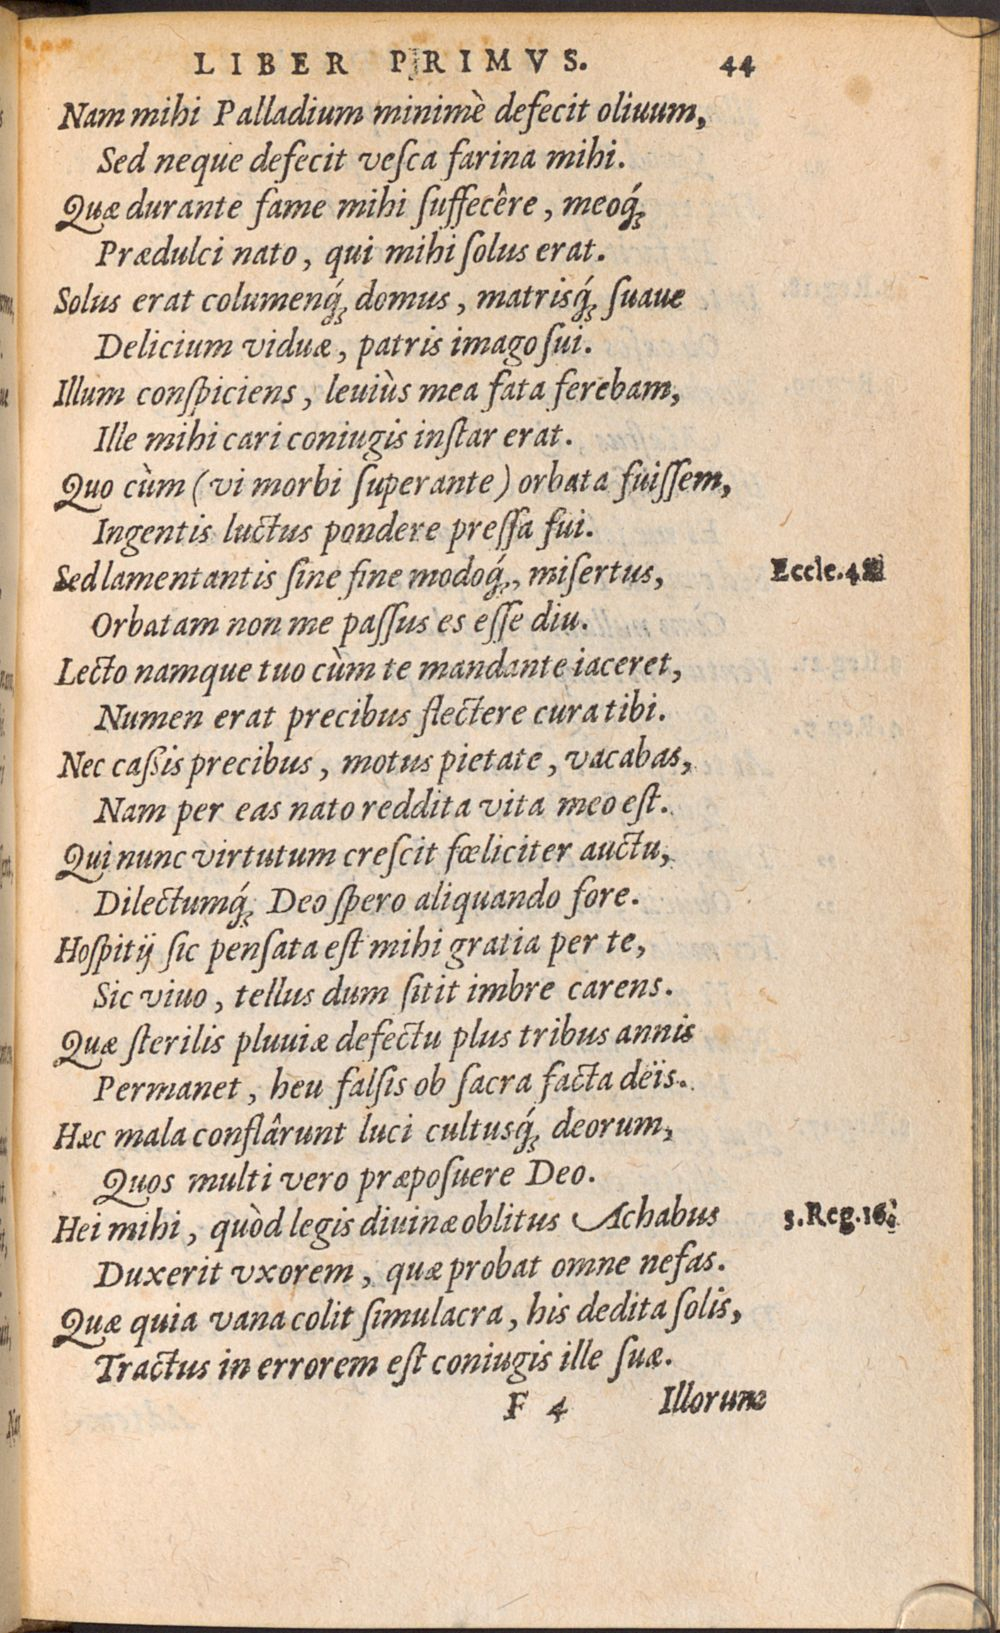 LIBER PRIMVS. 44
Nam mihi Palladium minimè defecit oliuum,
Sed neque defecit veſca farina mihi.
Quæ durante fame mihi ſuffecêre, meoq́ꝫ
Prædulci nato, qui mihi ſolus erat.
Solus erat columenq́ꝫ domus, matrisq́ꝫ ſuaue
Delicium viduæ, patris imago ſui.
Illum conſpiciens, leuiùs mea fata ferebam,
Ille mihi cari coniugis inſtar erat.
Quo cùm (vi morbi ſuperante) orbata fuiſſem,
Ingentis luctus pondere preſſa fui.
Sed lamentantis ſine fine modoq́ꝫ, miſertus, Eccle.48
Orbatam non me paſſus es eſſe diu.
Lecto namque tuo cùm te mandante iaceret,
Numen erat precibus flectere cura tibi.
Nec caſsis precibus, motus pietate, vacabas,
Nam per eas nato reddita vita meo eſt.
Qui nunc virtutum creſcit fœliciter auctu,
Dilectumq́ꝫ Deo ſpero aliquando fore.
Hoſpitij ſic penſata eſt mihi gratia per te,
Sic viuo, tellus dum ſitit imbre carens.
Quæ ſterilis pluuiæ defectu plus tribus annis
Permanet, heu falſis ob ſacra facta dëis.
Hæc mala conflârunt luci cultusq́ꝫ deorum,
Quos multi vero præpoſuere Deo.
Hei mihi, quòd legis diuinæ oblitus Achabus 3.Reg.16.
Duxerit vxorem, quæ probat omne nefas.
Quæ quia vana colit ſimulacra, his dedita ſolis,
Tractus in errorem eſt coniugis ille ſuæ.
F 4 Illorum